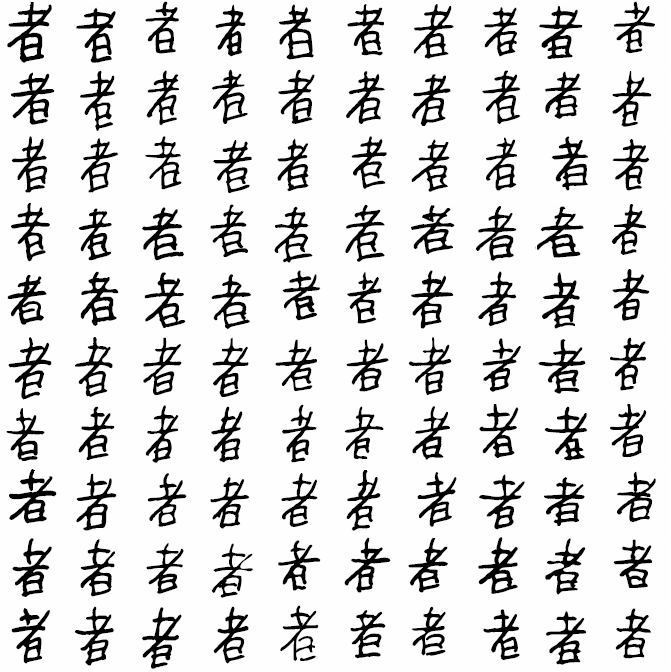 者者者者者者者者者者
者者者者者者者者者者
者者者者者者者者者者
者者者者者者者者者者
者者者者者者者者者者
者者者者者者者者者者
者者者者者者者者者者
者者者者者者者者者者
者者者者者者者者者者
者者者者者者者者者者